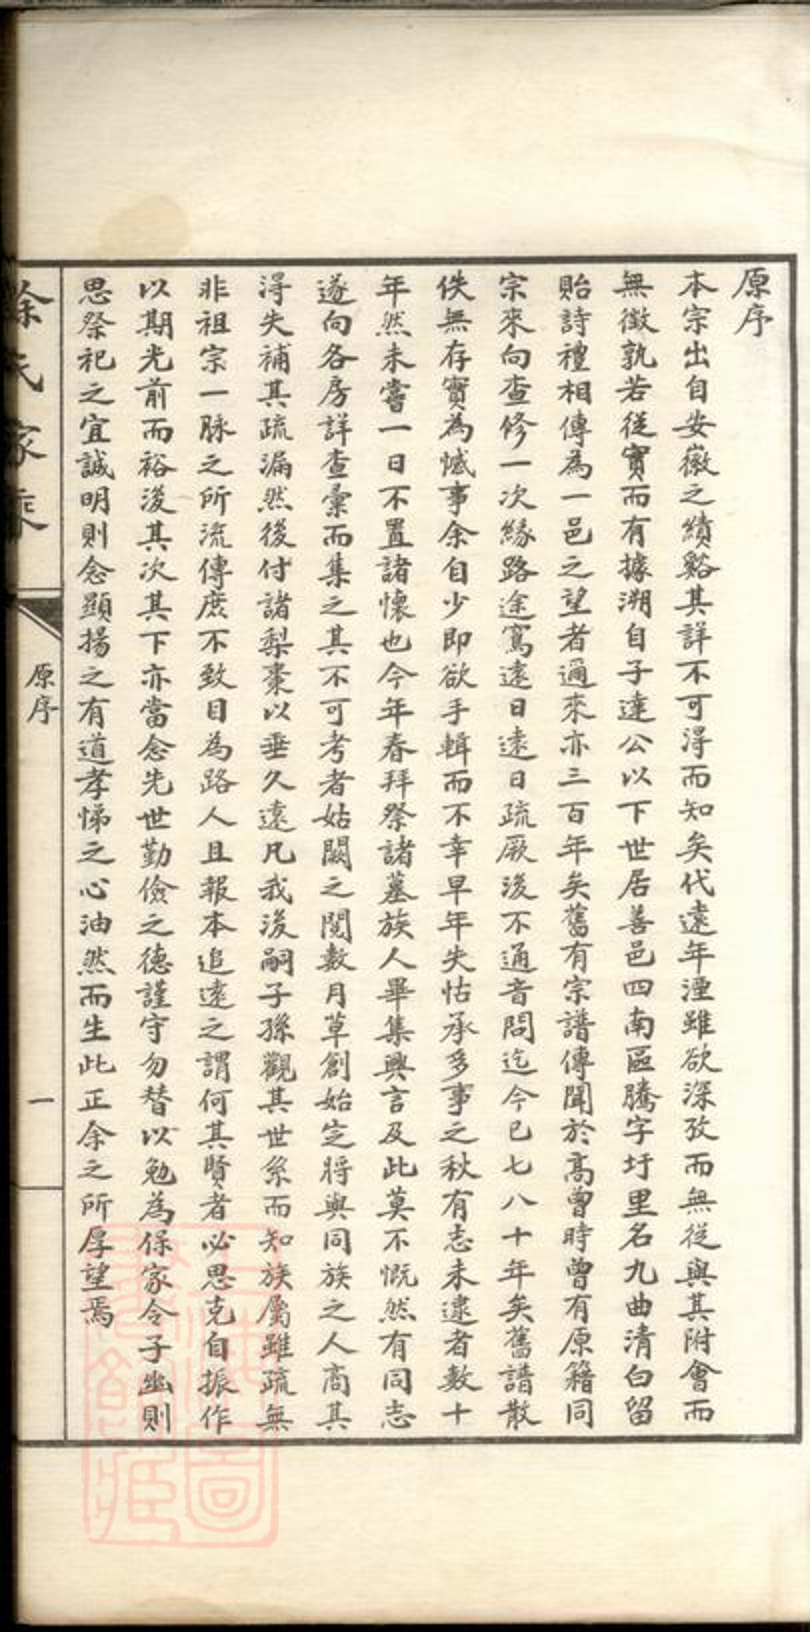 原序
本宗出自安徽之績谿其詳不可淂而知矣代遠年湮雖欲深攷而無從與其附會而
無徵孰若從實而有據溯自子達公以下世居善邑四南區騰字圩里名九曲清白留
貽詩禮相傳為一邑之望者邇來亦三百年矣舊有宗譜傳聞於高曾時曾有原籍同
宗來向查修一次緣路途窵遠日遠日疏厥後不通音問迄今已七八十年矣舊譜散
佚無存實為憾事余自少即欲手輯而不幸早年失怙承多事之秋有志未逮者數十
年然未嘗一日不置諸懷也今年春拜祭諸墓族人畢集興言及此莫不慨然有同志
遂向各房詳查彙而集之其不可考者姑闕之閱數月草創始定將與同族之人商其
淂失補其疏漏然後付諸梨棗以垂久遠凡我後嗣子孫觀其世系而知族屬雖疏無
非祖宗一脉之所流傳庶不致目為路人且報本追遠之謂何其賢者必思克自振作
以期光前而裕後其次其下亦當念先世勤儉之德謹守勿替以勉為保家令子幽則
思祭祀之宜誠明則念顯揚之有道孝悌之心油然而生此正余之所厚望焉
氏家乘
原序
一